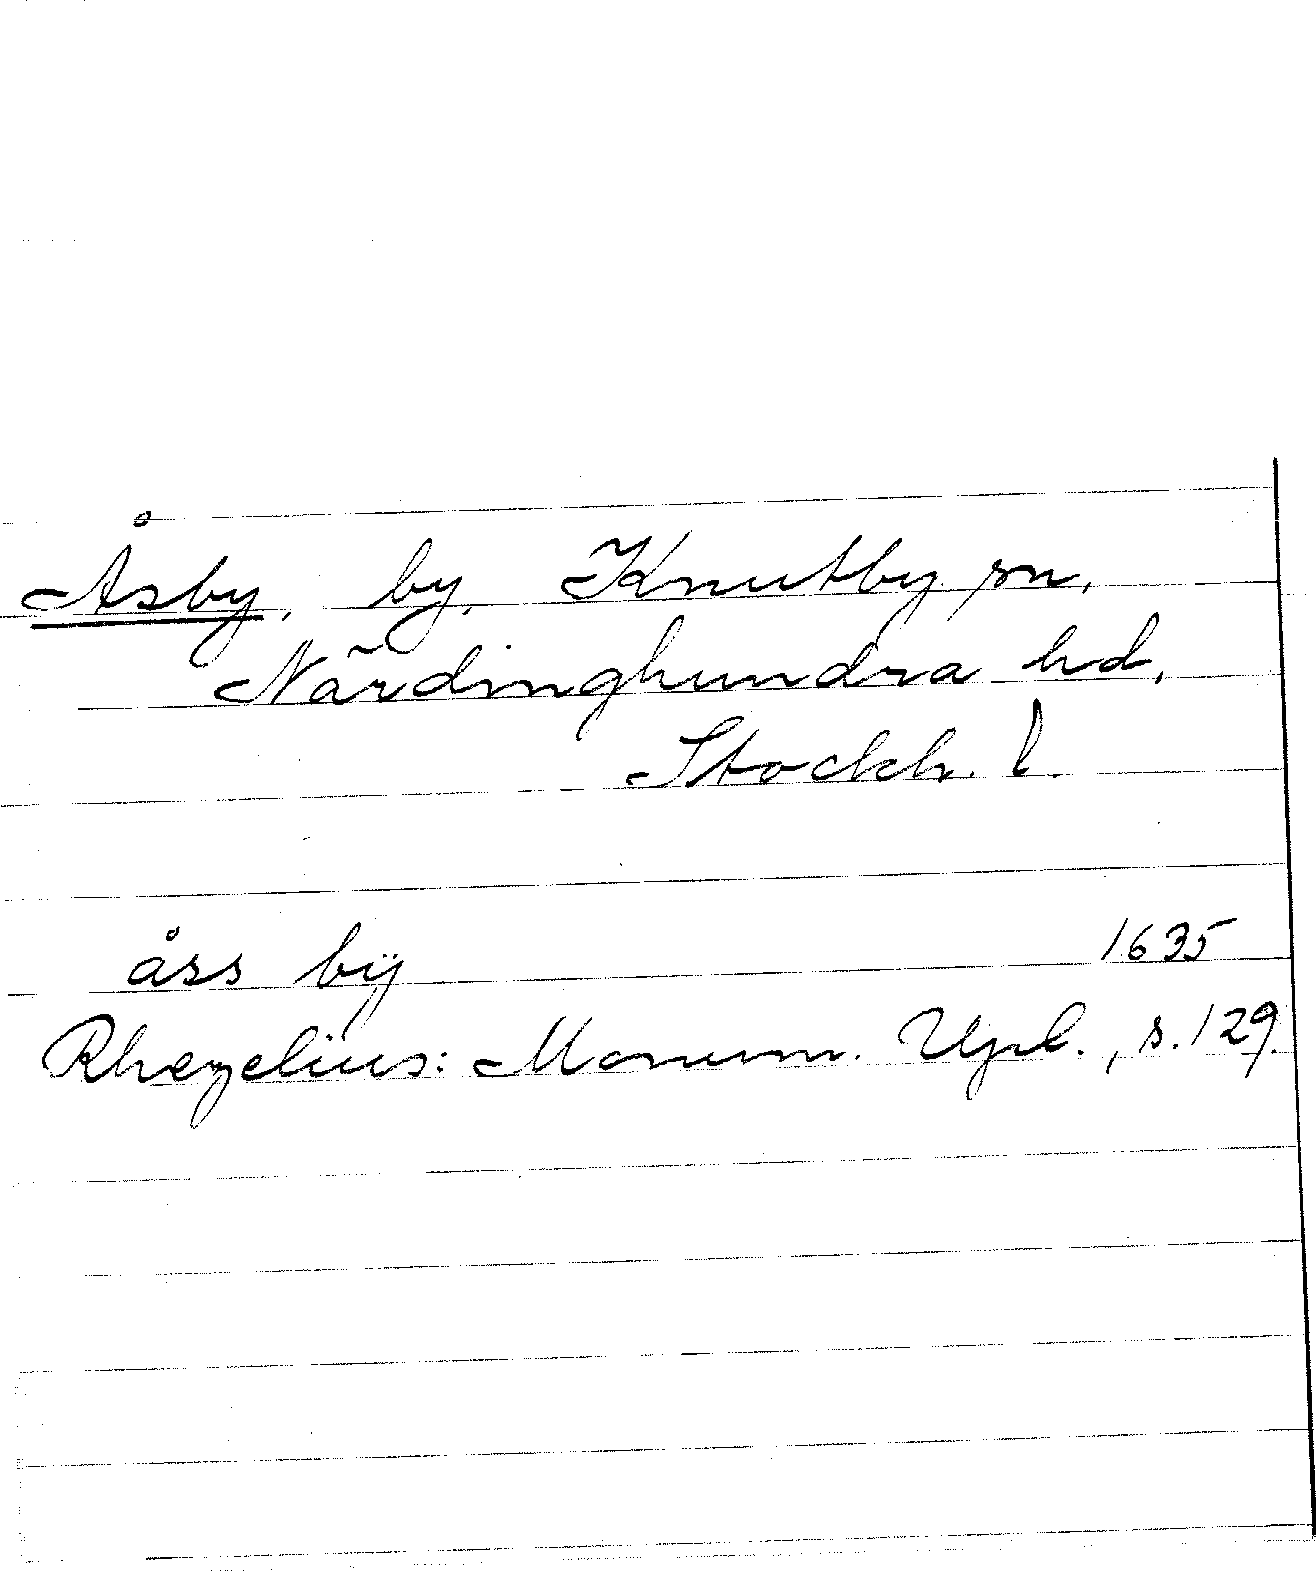 Åsby, by, Knutby sn,
Närdinghundra hd,
Stockh. l.
åss bÿ 1635
Rhezelius: Monum. Upl., s. 129.